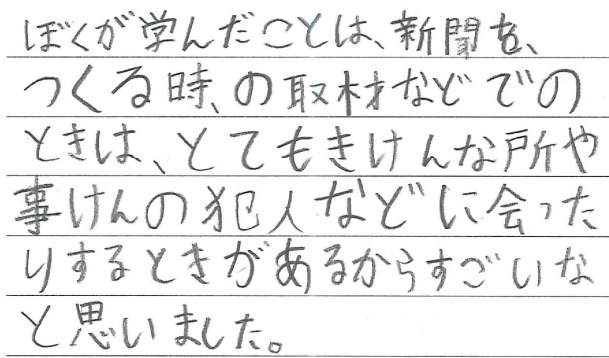 ぼくが学んだことは、新聞を、
つくる時、の取材などでの
ときは、とてもきけんな所や
事けんの犯人などに会った
りするときがあるからすごいな
と思いました。